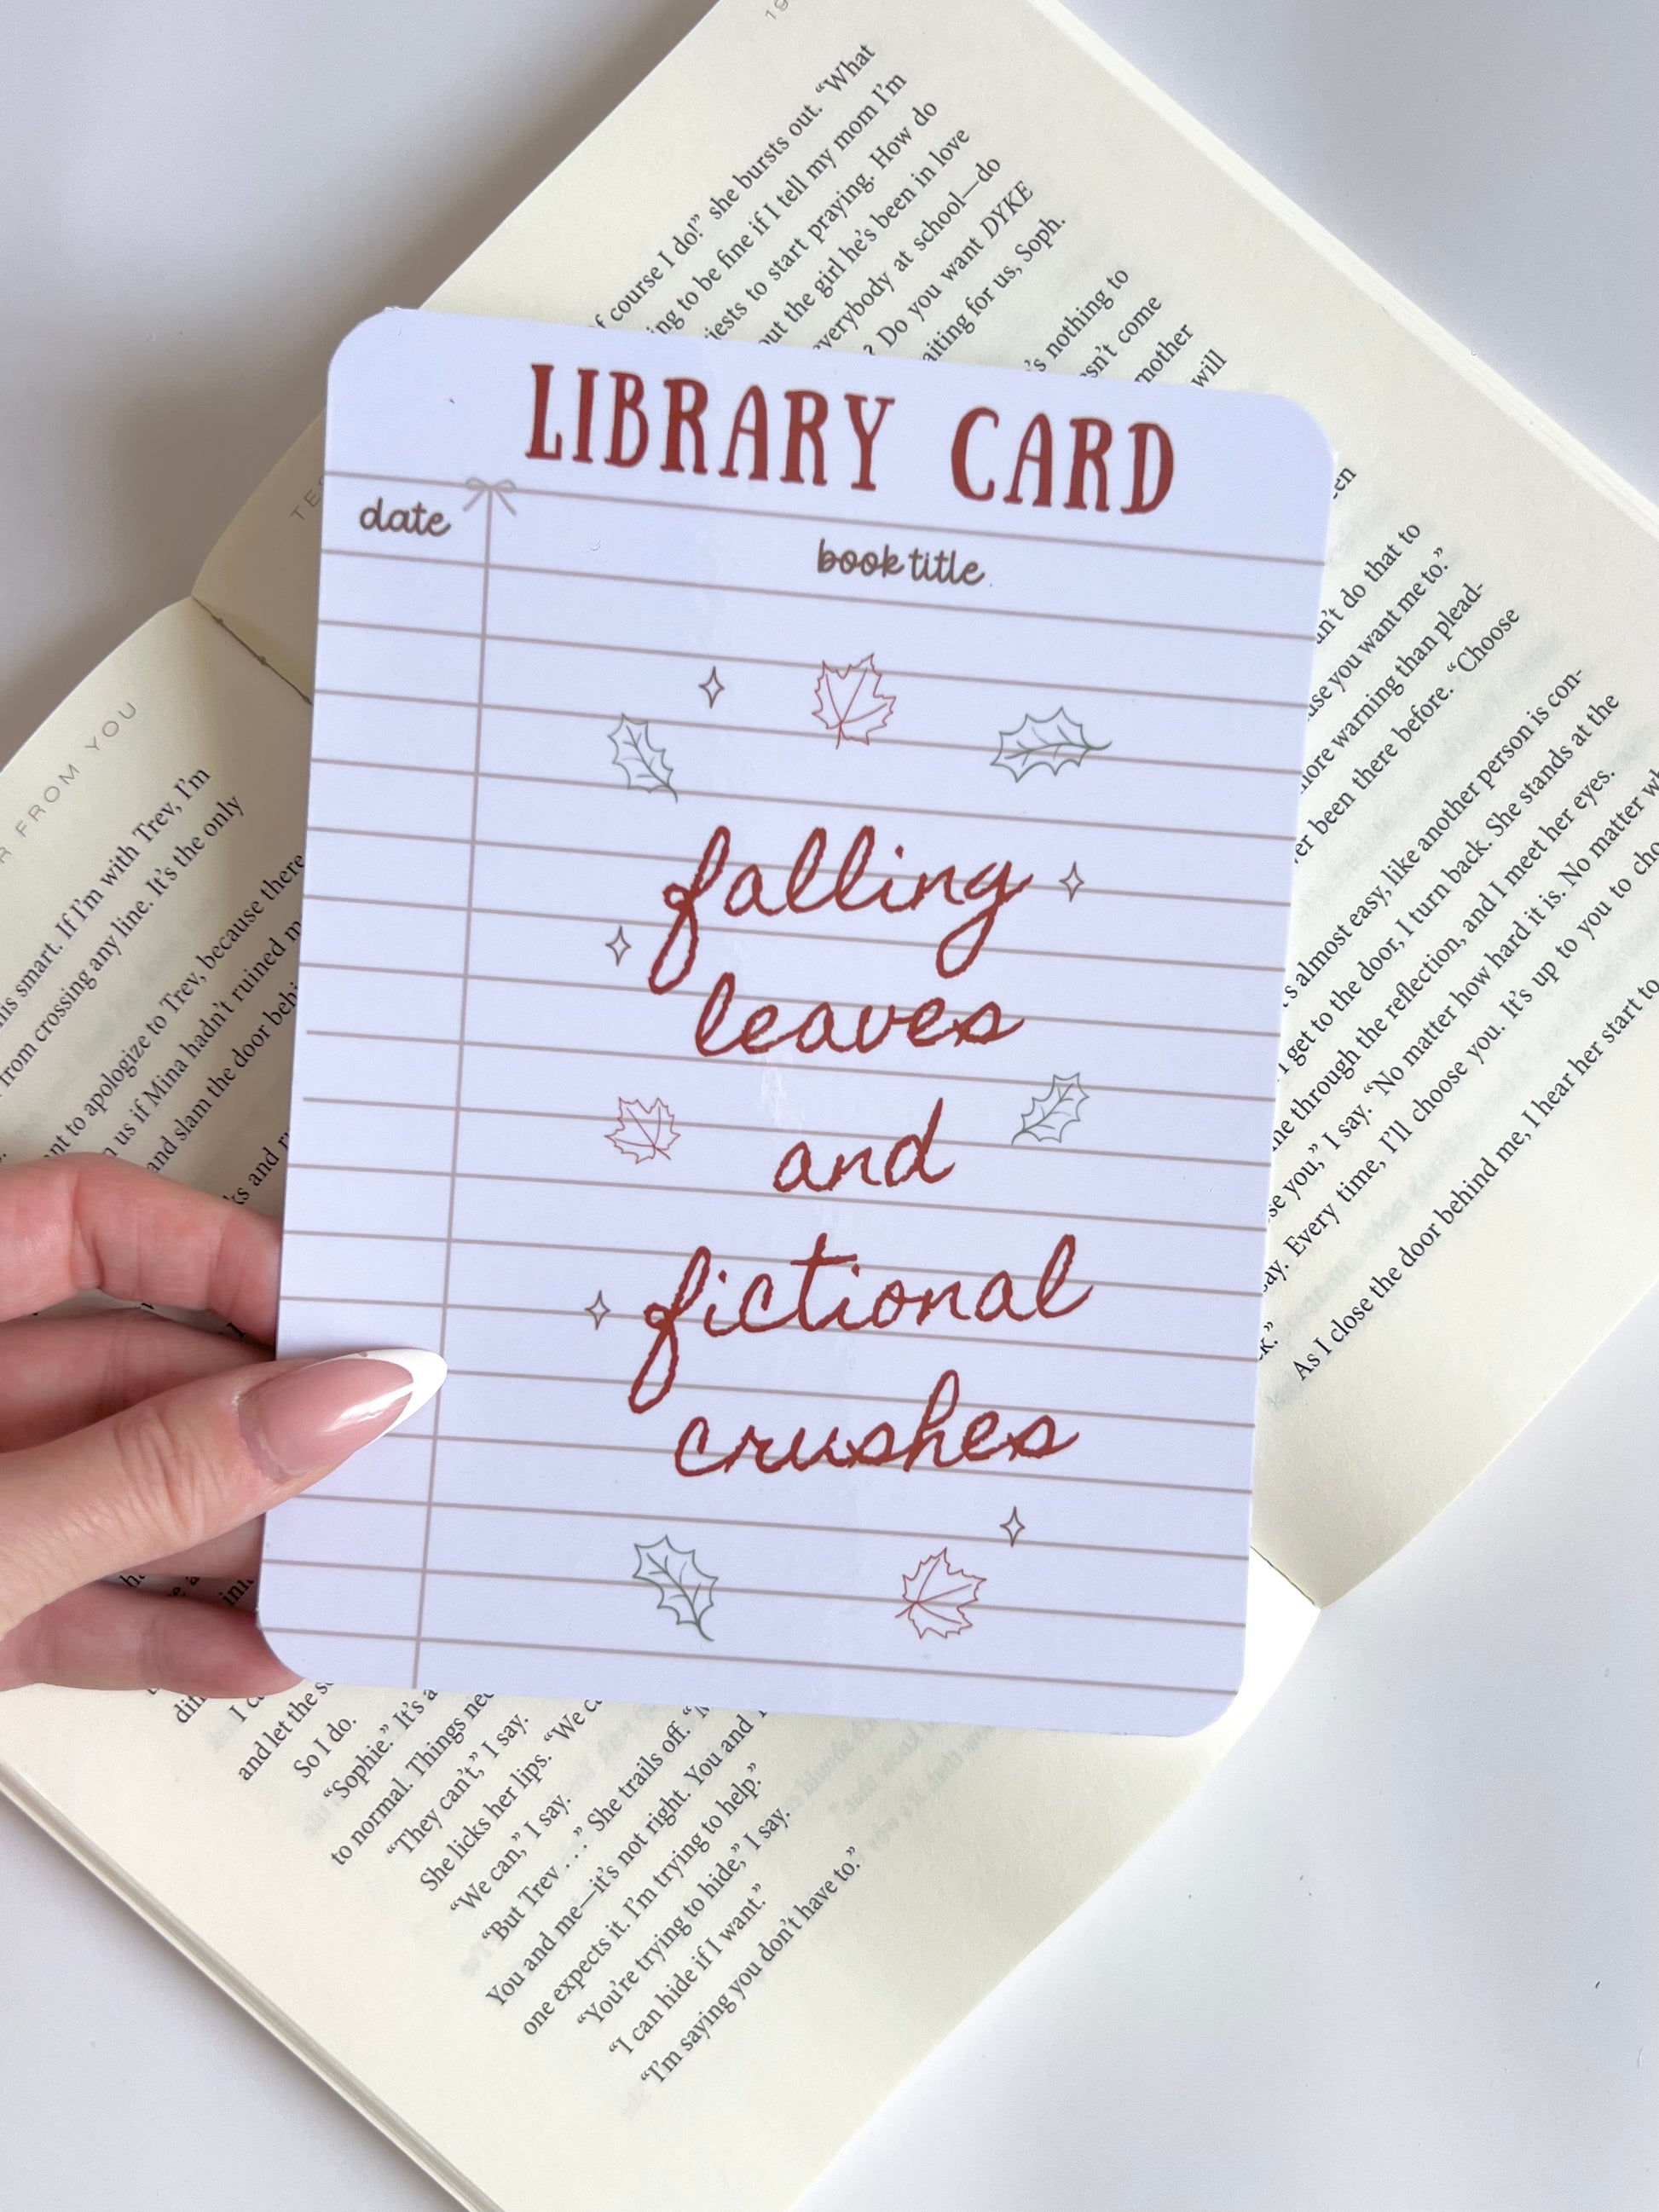 LIBRARY CARD
date
book title
falling
leaves
and
fictional
crushes
19
course I do!” she bursts out. “What
to be fine if I tell my mom I’m
to start praying. How do
the girl he’s been in love
everybody at school—do
? Do you want DYKE
waiting for us, Soph.
nothing to
come
mother
will
do that to
you want me to.”
more warning than plead-
been there before. “Choose
almost easy, like another person is con-
I get to the door, I turn back. She stands at the
through the reflection, and I meet her eyes.
you,” I say. “No matter how hard it is. No matter
say. Every time, I’ll choose you. It’s up to you to
As I close the door behind me, I hear her start to
FROM YOU
smart. If I’m with Trev, I’m
from crossing any line. It’s the only
to apologize to Trev, because there
us if Mina hadn’t ruined
and slam the door
and
and let the
So I do.
“Sophie.” It’s a
to normal. Things
“They can’t,” I say.
She licks her lips. “We
“We can,” I say.
“But Trev . . .” She trails off.
You and me—it’s not right. You and
one expects it. I’m trying to help.”
“You’re trying to hide,” I say.
“I can hide if I want.”
“I’m saying you don’t have to.”